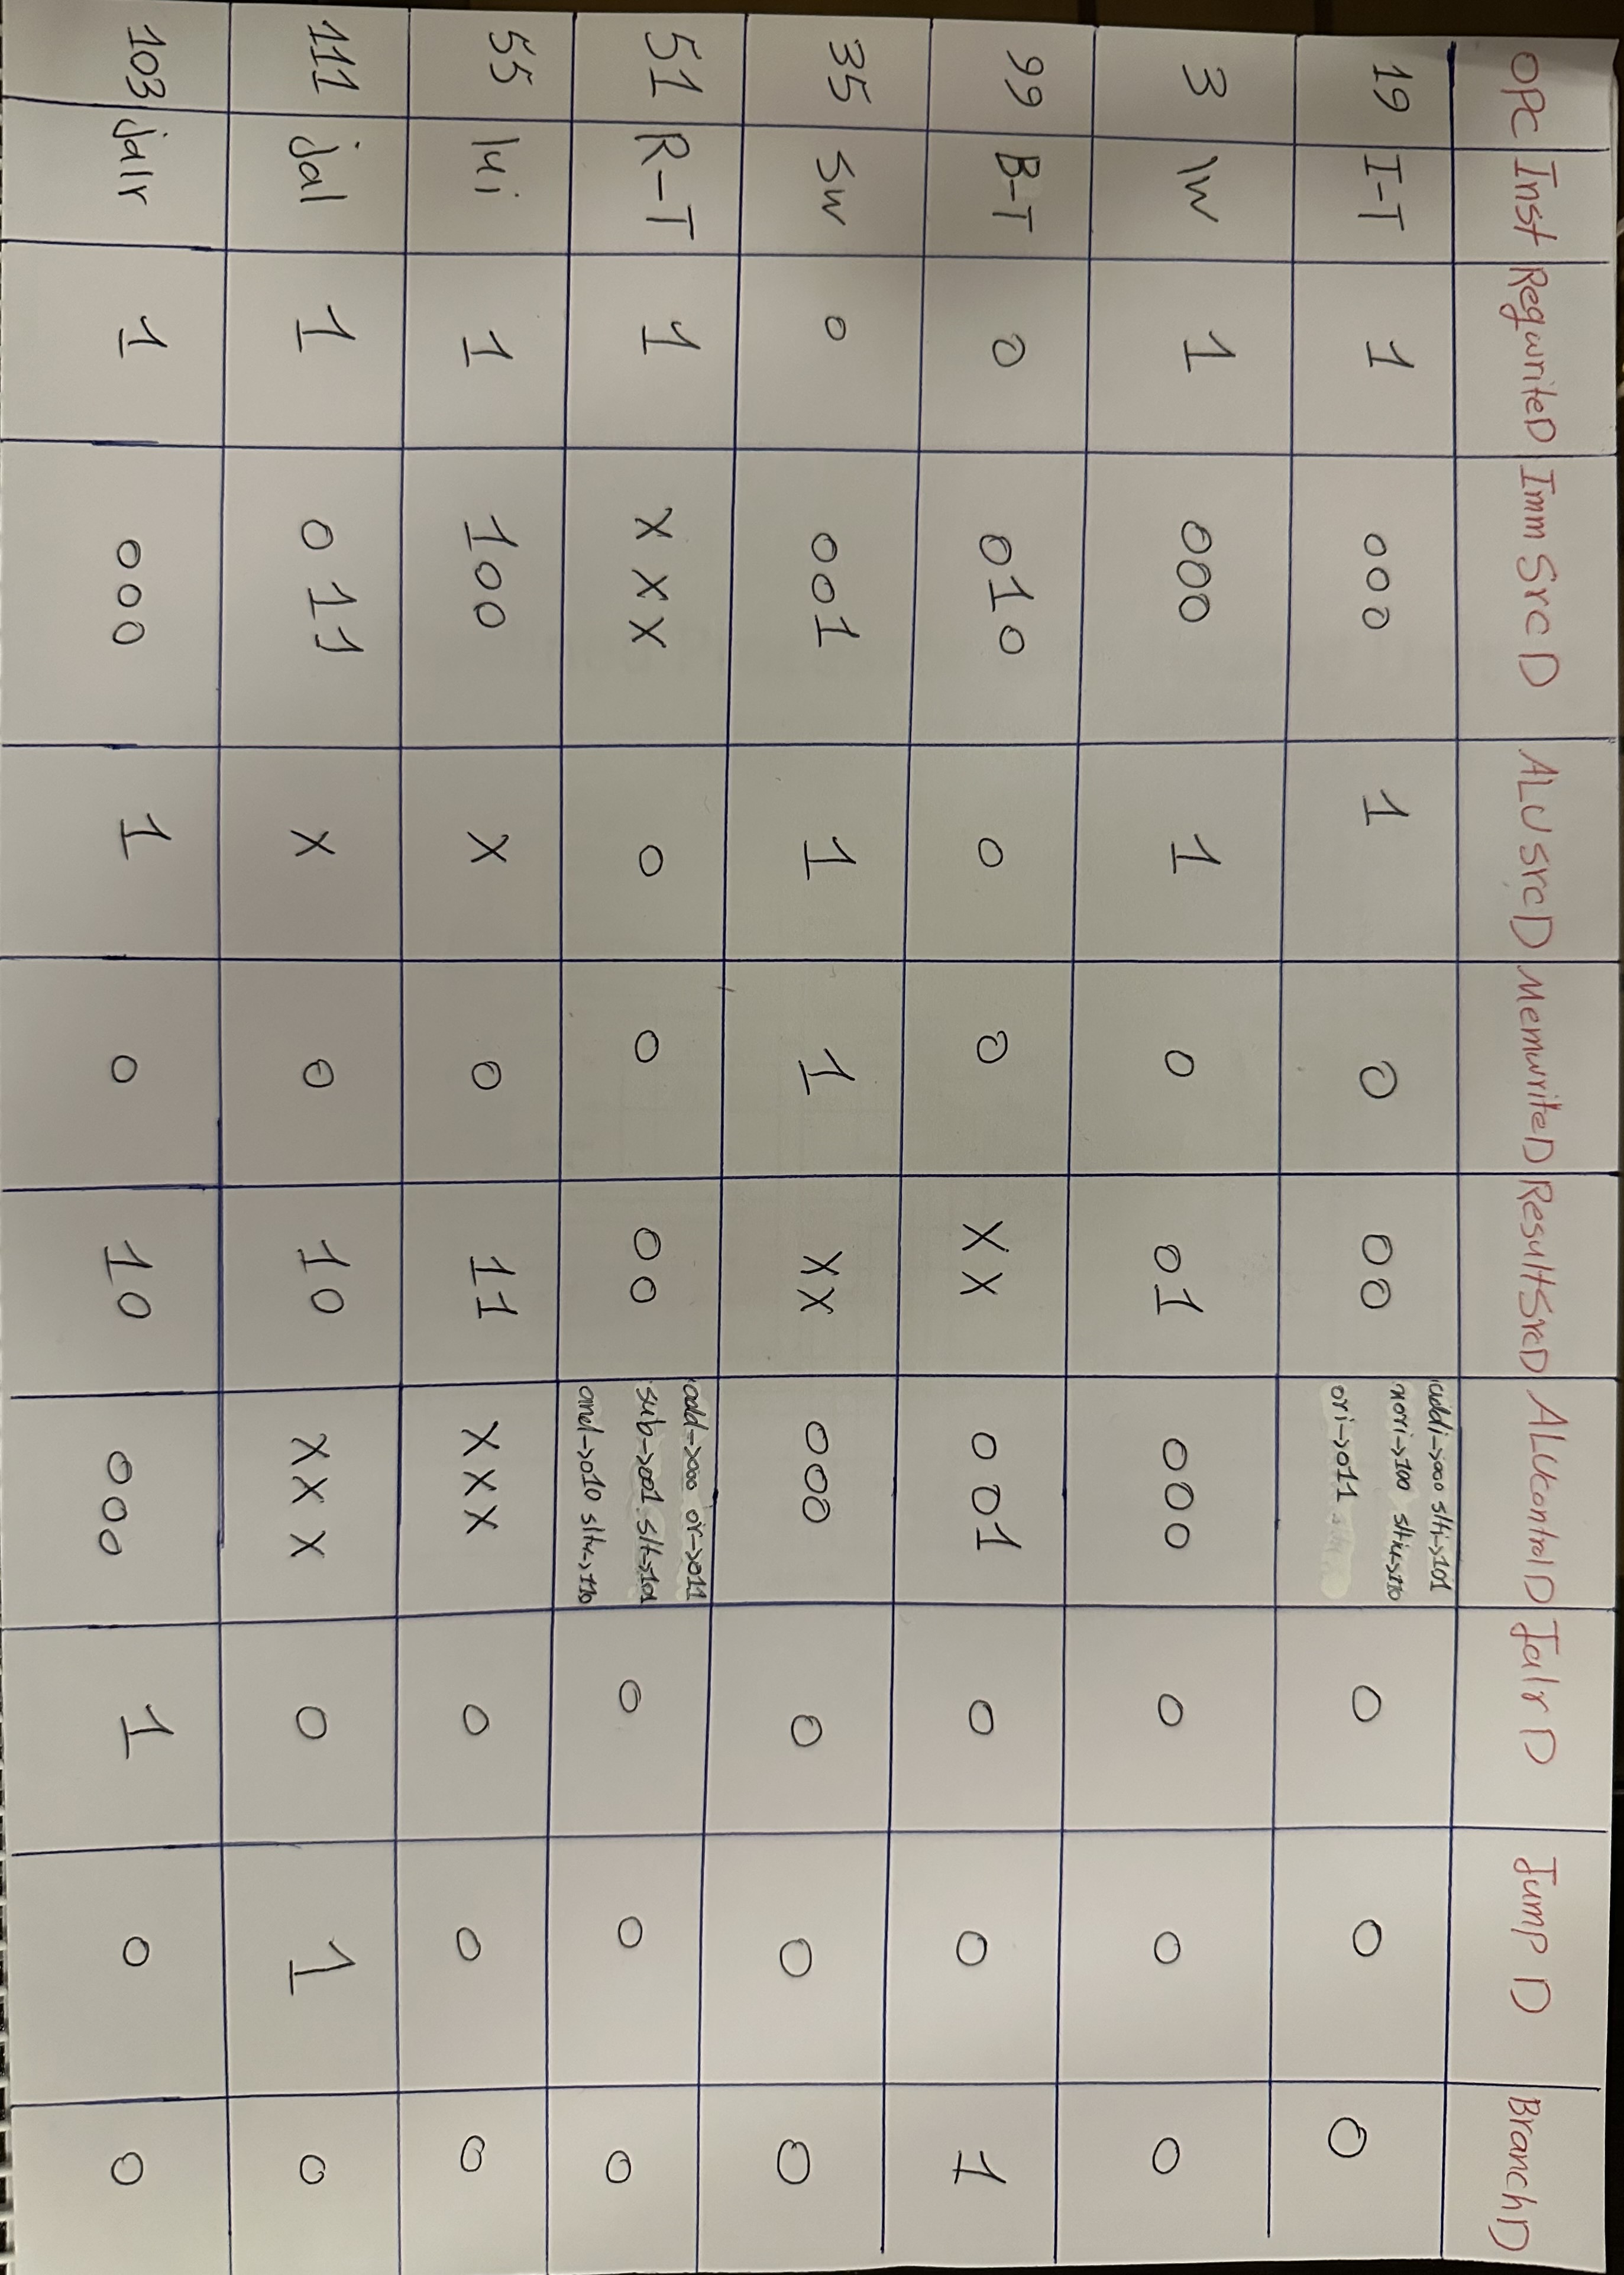 OPC Inst RegwriteD ImmSrcD ALUSrcD MemwriteD ResultSrcD ALUcontrolD JalrD JumpD BranchD
19 I-T 1 000 1 0 00 addi->000 slti->101 0 0 0
xori->100 sltiu->110
ori->011
3 lw 1 000 1 0 01 000 0 0 0
99 B-T 0 010 0 0 XX 001 0 0 1
35 SW 0 001 1 1 XX 000 0 0 0
51 R-T 1 XXX 0 0 00 add->000 or->011 0 0 0
sub->001 slt->101
and->010 sltu->110
55 lui 1 100 X 0 11 XXX 0 0 0
111 jal 1 011 X 0 10 XXX 0 1 0
103 jalr 1 000 1 0 10 000 1 0 0